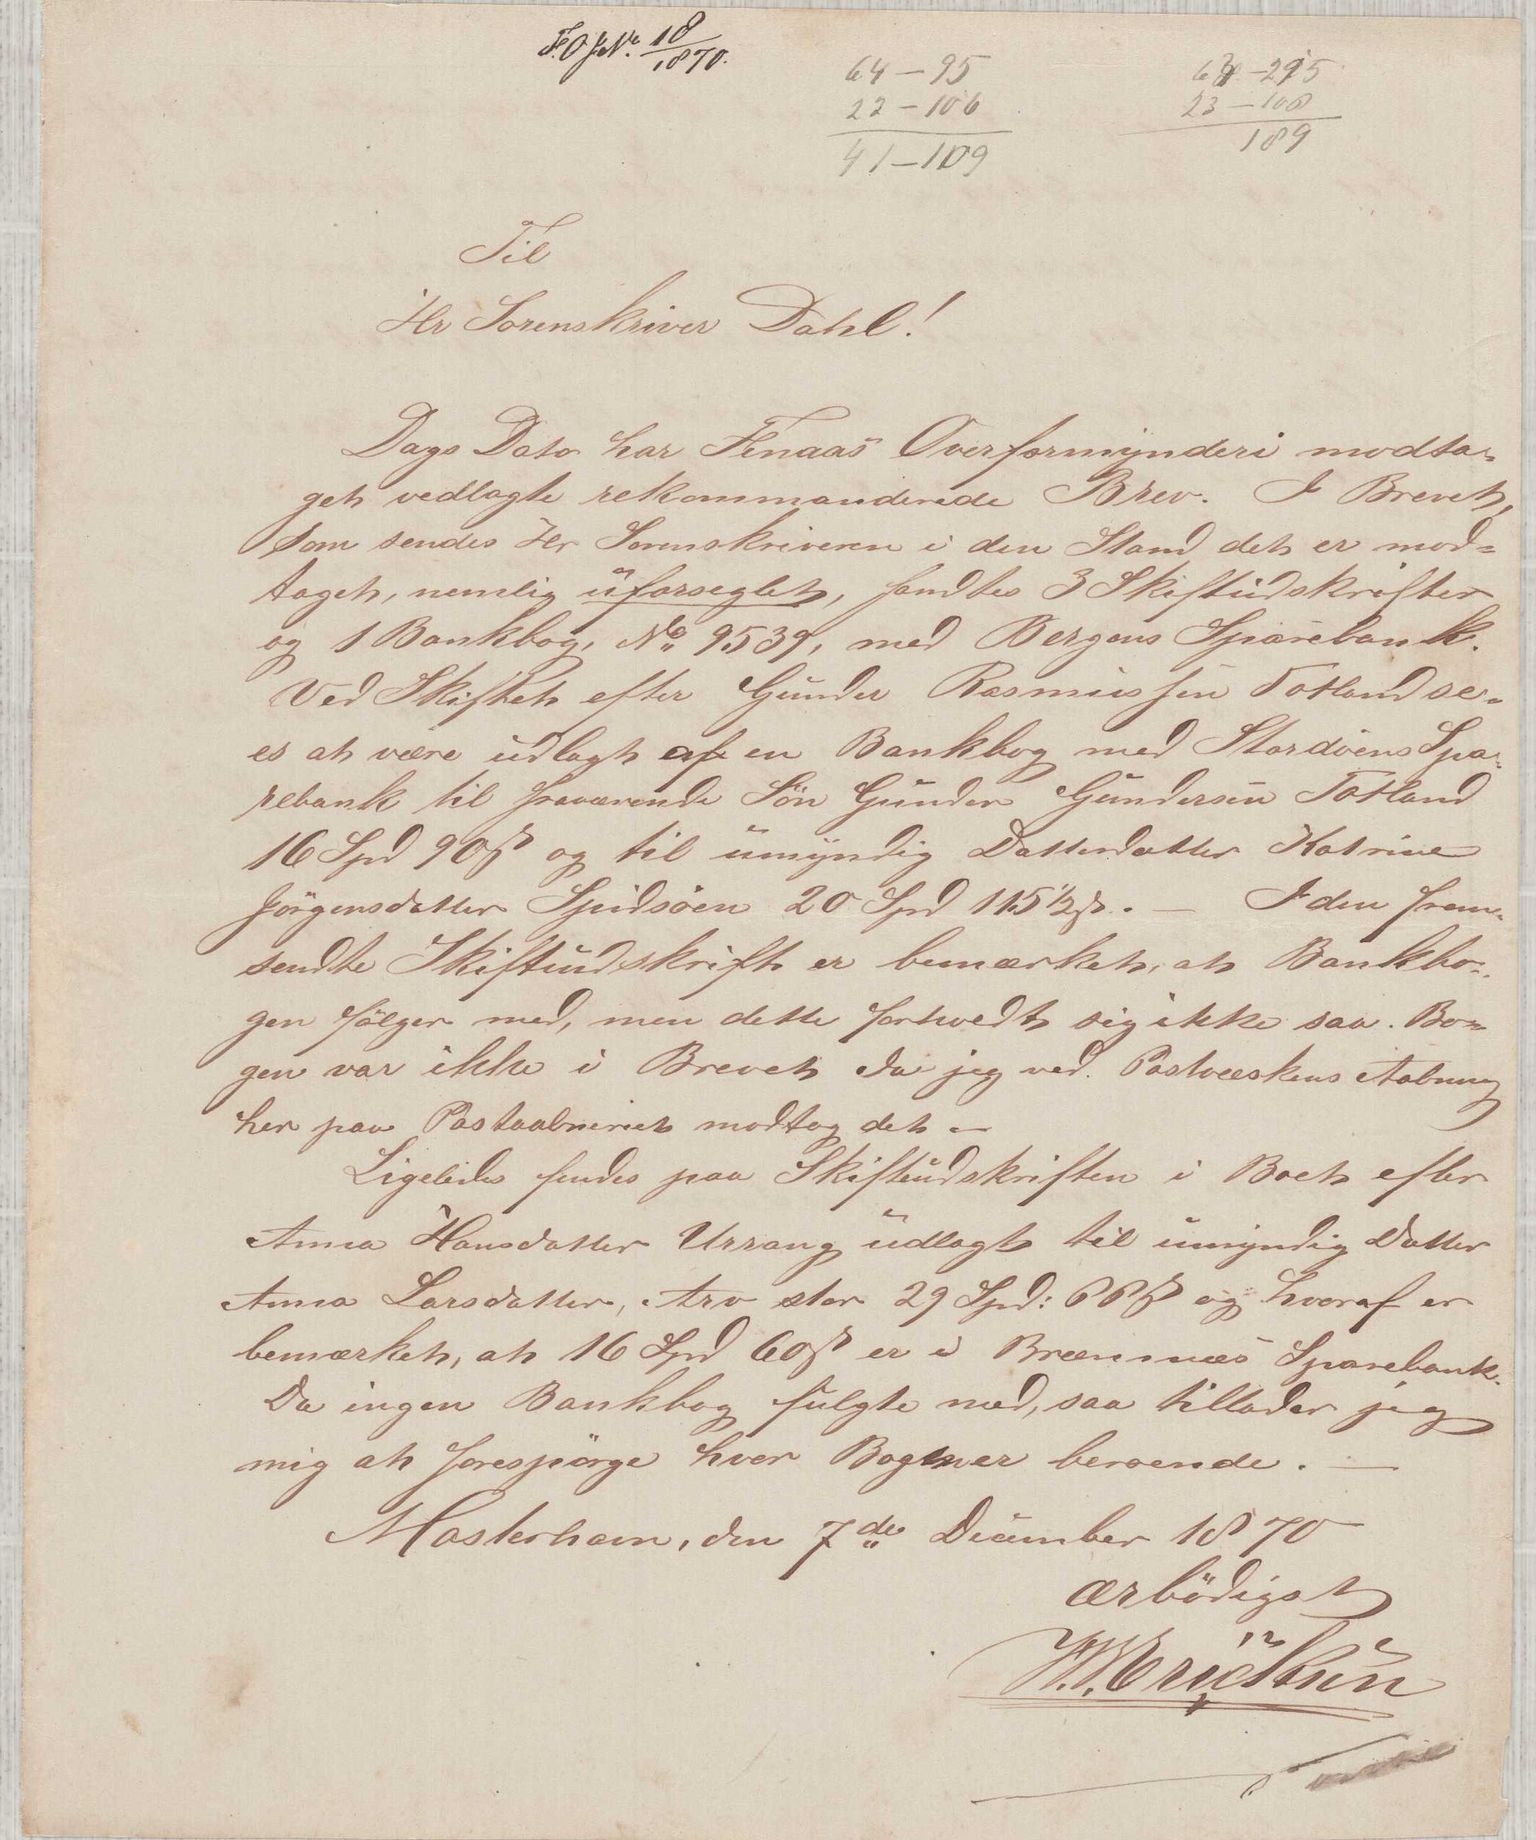 F.O.J.No. 18/1870.
64 - 95
22 - 106
41 - 109
64 - 295
23 - 108
189
Til
Hr Sorenskriver Dahl!
Dags Dato har Fenaas Overformynderi modta-
get vedlagte rekommanderede Brev. I Brevet,
som sendes Hr Sorenskriveren i den Stand det er mod-
taget, nemlig uforseglet, fandtes 3 Skiftudskrifter
og 1 Bankbog, No 9539, med Bergens Sparebank.
Ved Skiftet efter Gunder Rasmussen Totland se-
es at være udlagt af en Bankbog med Stordöens Spa-
rebank til fraværende Sön Gunder Gundersen Totland
16 Spd 90 ß og til umyndig Datterdatter Katrine
Jörgensdatter Spidsöen 20 Spd 115 1/2 ß. — I den frem-
sendte Skiftudskrift er bemærket, at Bankbo-
gen fölger med, men dette forholdt sig ikke saa. Bo-
gen var ikke i Brevet da jeg ved Postvæskens Aabning
her paa Postaabneriet modtog det —
Ligeledes findes paa Skiftudskriften i Boet efter
Anna Hansdatter Urrang udlagt til umyndig Datter
Anna Larsdatter, Arv stor 29 Spd: 66 ß og hvoraf er
bemærket, at 16 Spd 60 ß er i Bræmnæs Sparebank.
Da ingen Bankbog fulgte med, saa tillader jeg
mig at forespörge hvor Bogen er beroende. —
Mosterhavn, den 7de December 1870
ærbödigst
Erichsen